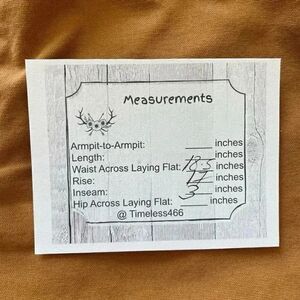 Measurements
Armpit-to-Armpit: ____ inches
Length: ____ inches
Waist Across Laying Flat: 18.5 inches
Rise: 17 inches
Inseam: 3 inches
Hip Across Laying Flat: ____ inches
@ Timeless466